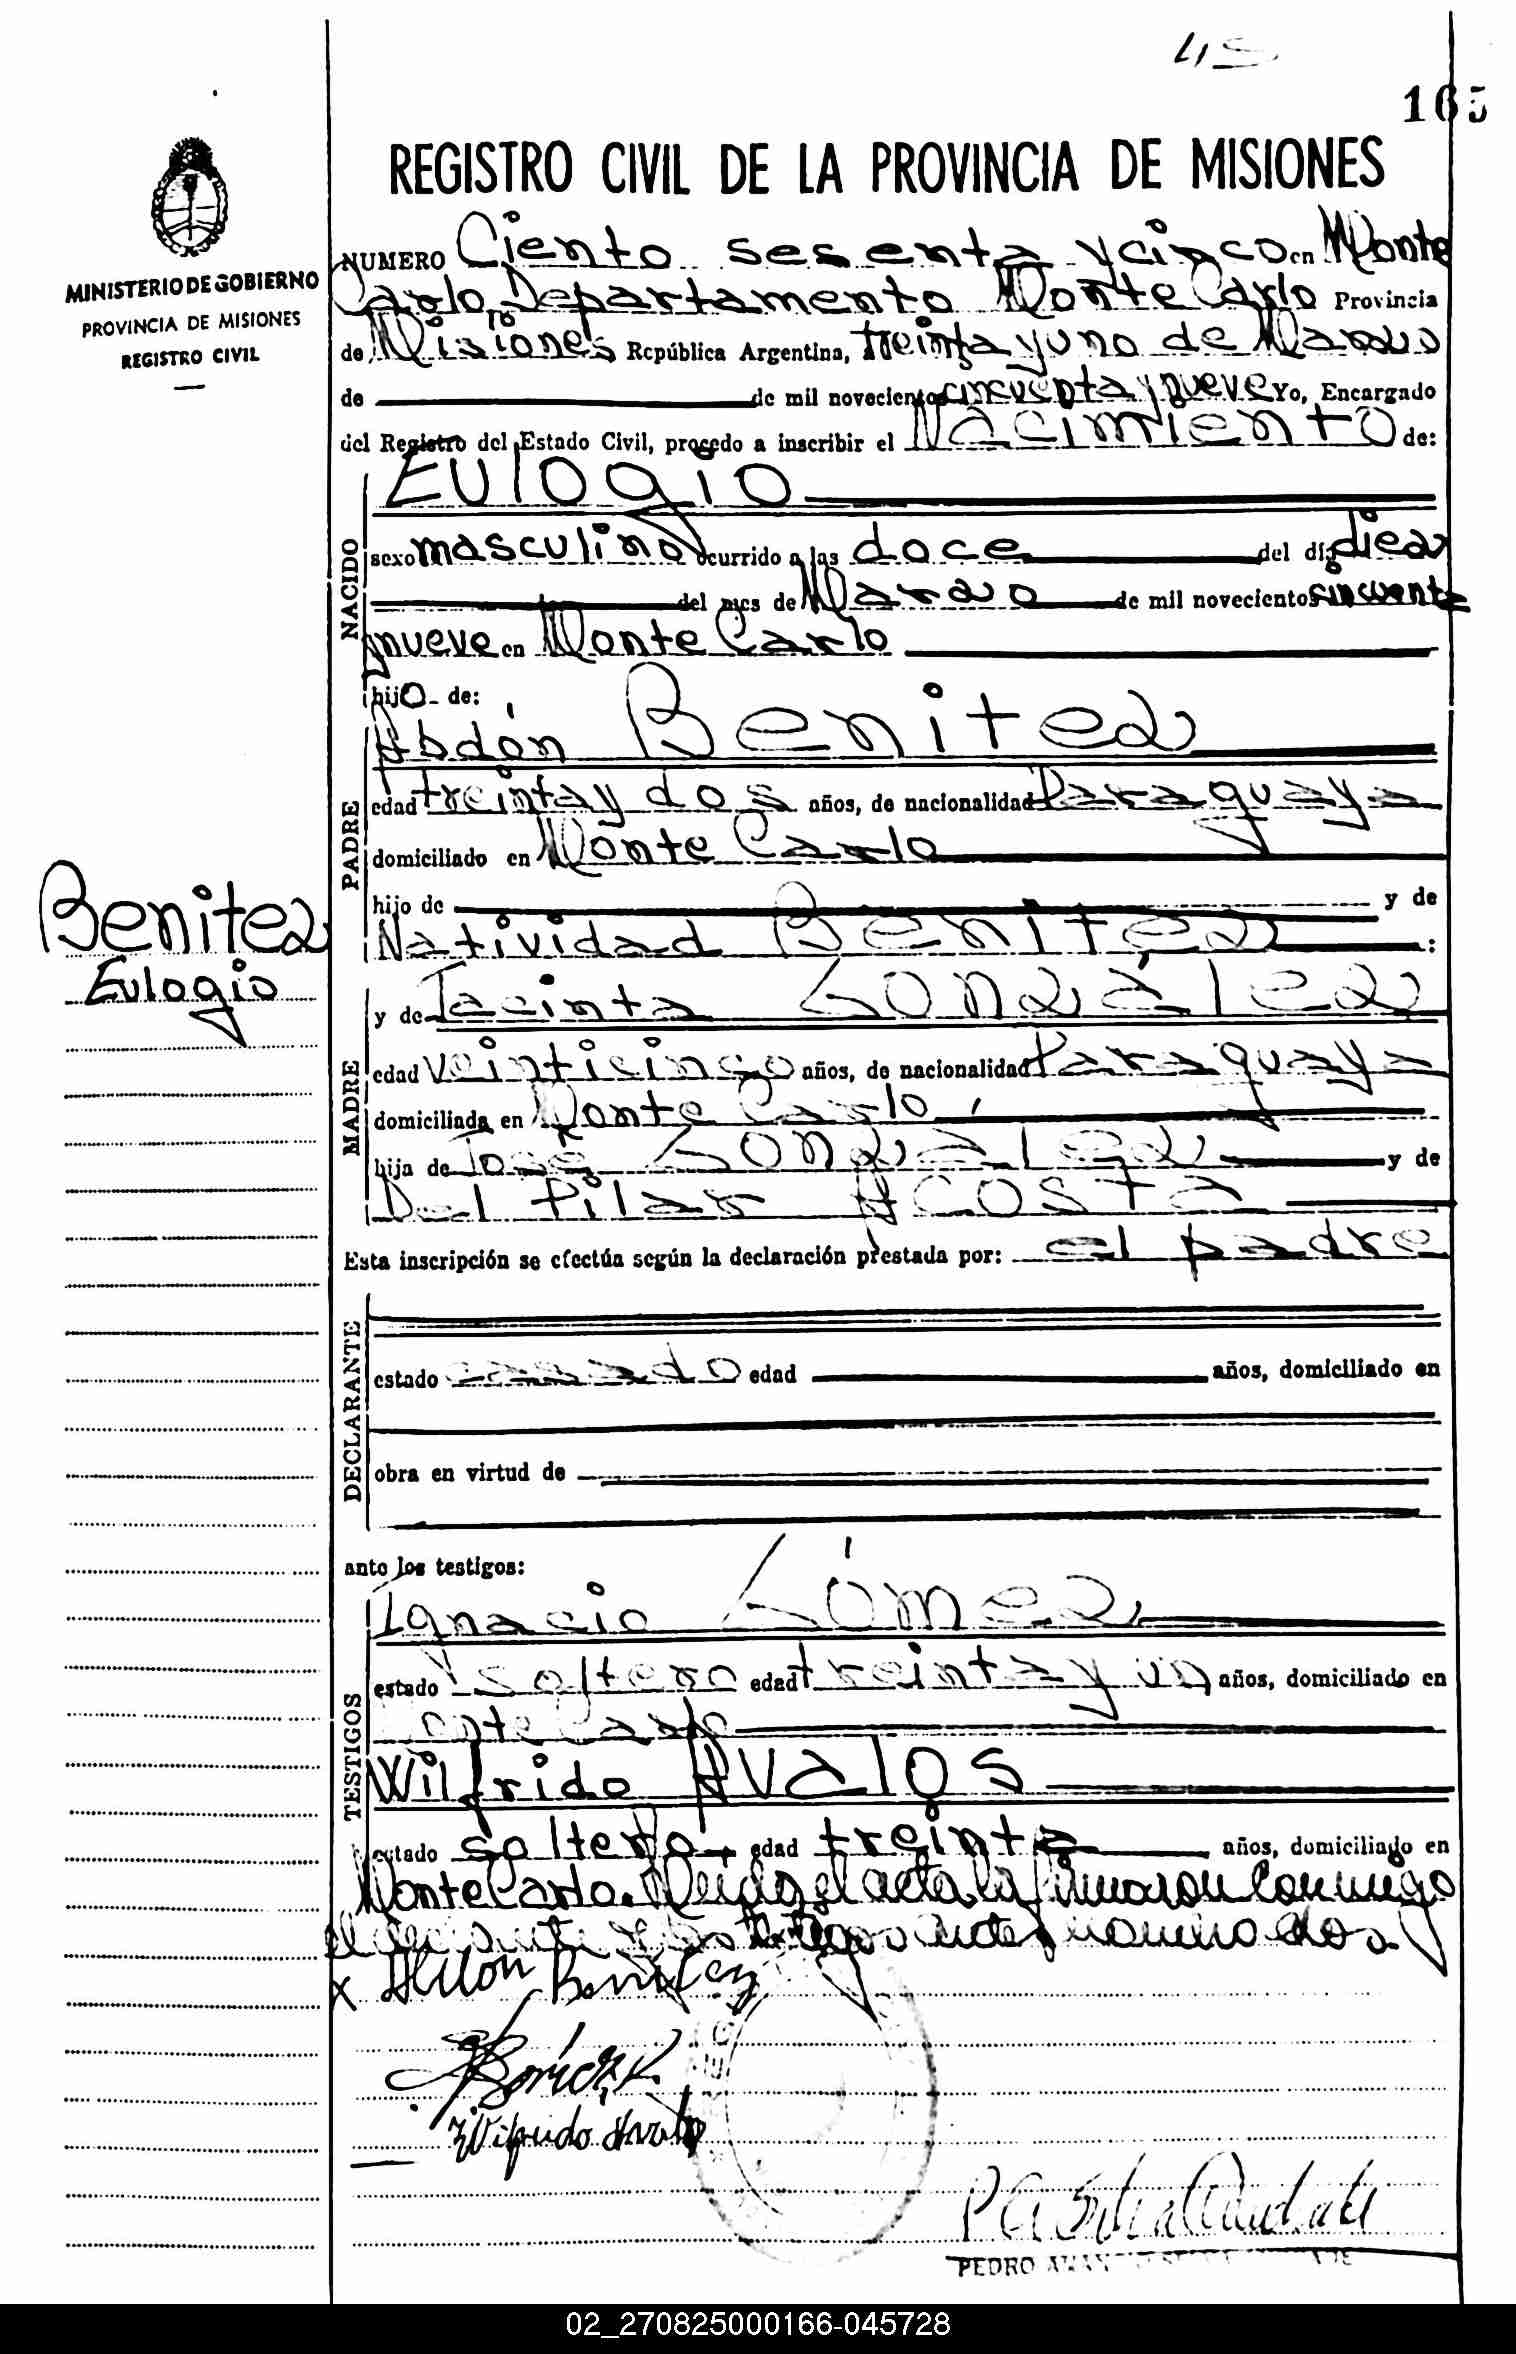 45
165
REGISTRO CIVIL DE LA PROVINCIA DE MISIONES
MINISTERIO DE GOBIERNO
PROVINCIA DE MISIONES
REGISTRO CIVIL
NUMERO Ciento sesenta y cinco en Monte
Carlo Departamento Monte Carlo Provincia
de Misiones República Argentina, treinta y uno de Marzo
de de mil novecientos cincuenta y nueve Yo, Encargado
del Registro del Estado Civil, procedo a inscribir el Nacimiento de:
NACIDO
Eulogio
sexo masculino ocurrido a las doce del día diez
del mes de Marzo de mil novecientos cincuenta
y nueve en Monte Carlo
hijo de:
PADRE
Abdón Benitez
edad treinta y dos años, de nacionalidad Paraguaya
domiciliado en Monte Carlo
hijo de y de
Natividad Benitez :
Benitez
Eulogio
MADRE
y de Jacinta González
edad veinticinco años, de nacionalidad Paraguaya
domiciliada en Monte Carlo
hija de José González y de
Del Pilar Acosta
Esta inscripción se efectúa según la declaración prestada por: el padre
DECLARANTE
estado casado edad años, domiciliado en
obra en virtud de
ante los testigos:
TESTIGOS
Ignacio Gómez
estado soltero edad treinta y un años, domiciliado en
Monte Carlo
Wilfrido Avalos
estado soltero edad treinta años, domiciliado en
Monte Carlo. Leida el acta la firmaron conmigo
el declarante y los testigos antes nombrados.
x Abdon Benitez
Wilfrido Avalos
PEDRO
02_270825000166-045728